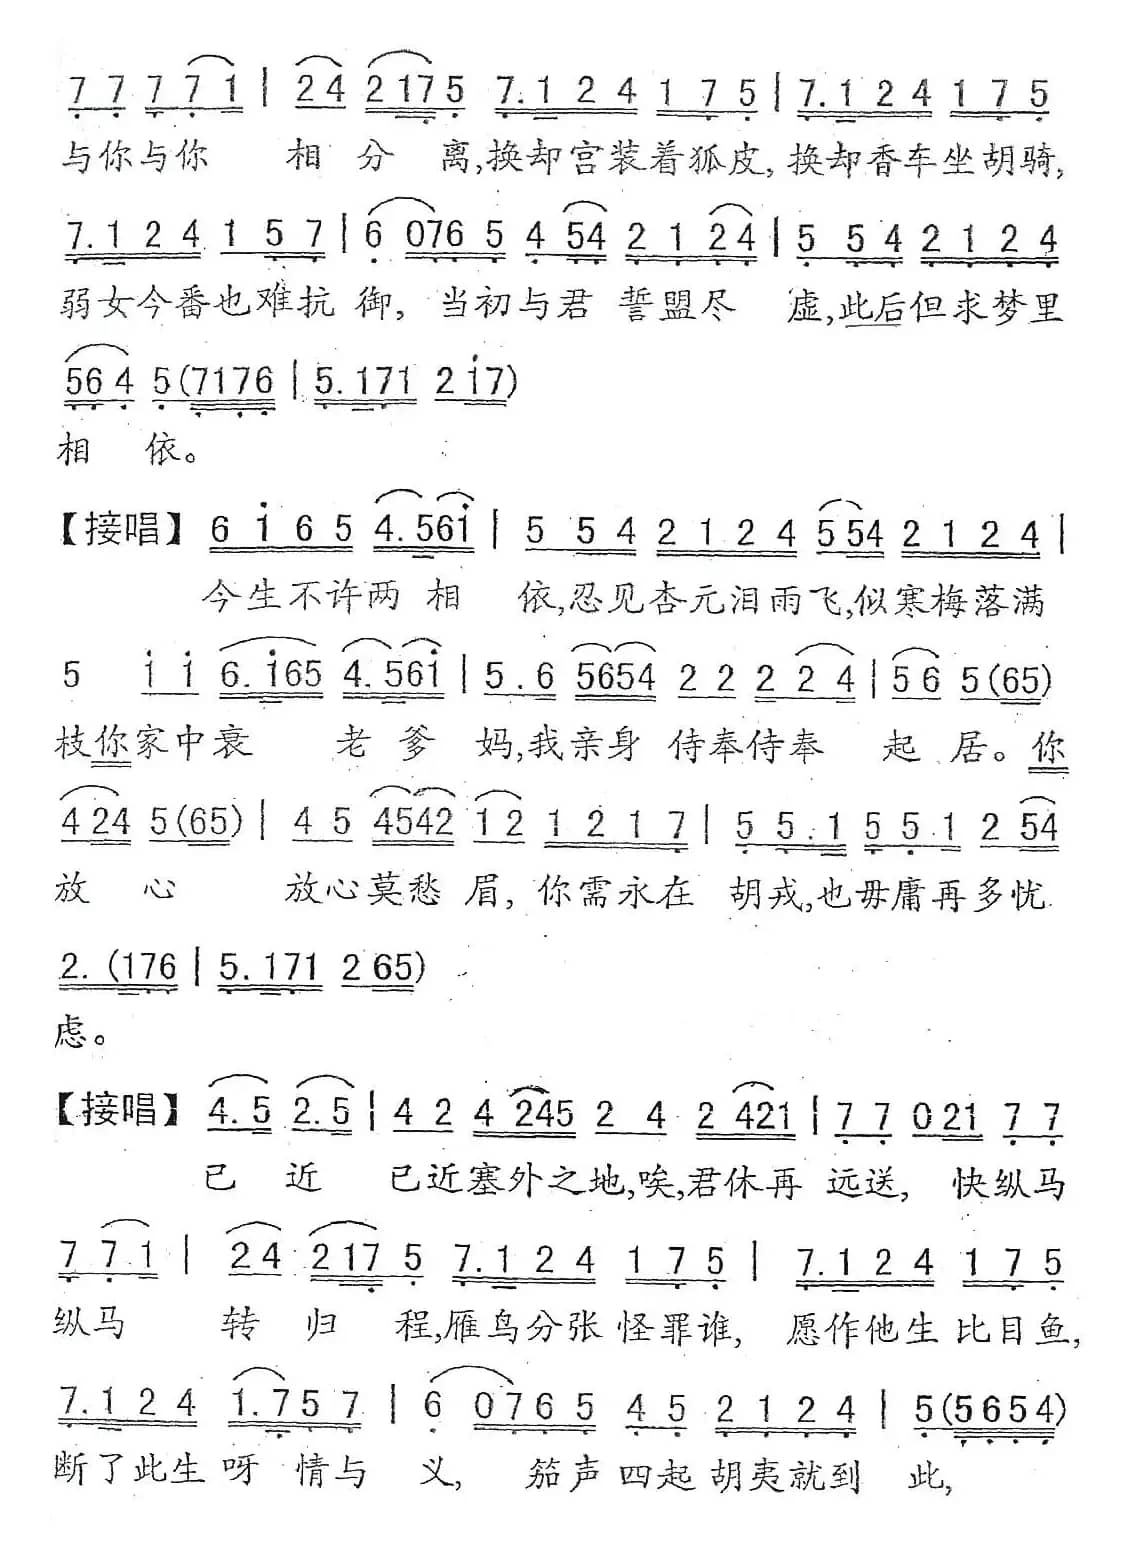 7 7 7 7 1 | 2 4 2 1 7 5 7. 1 2 4 1 7 5 | 7. 1 2 4 1 7 5
与你与你 相 分 离,换却宫装着狐皮, 换却香车坐胡骑,
7. 1 2 4 1 5 7 | 6 0 7 6 5 4 5 4 2 1 2 4 | 5 5 4 2 1 2 4
弱女今番也难抗 御, 当初与君 誓盟尽 虚,此后但求梦里
5 6 4 5 (7 1 7 6 | 5. 1 7 1 2 i 7)
相 依。
【接唱】 6 i 6 5 4. 5 6 i | 5 5 4 2 1 2 4 5 5 4 2 1 2 4 |
今生不许两 相 依,忍见杏元泪雨飞,似寒梅落满
5 i i 6. i 6 5 4. 5 6 i | 5. 6 5 6 5 4 2 2 2 2 4 | 5 6 5 (6 5)
枝你家中衰 老 爹 妈,我亲身 侍奉侍奉 起 居。你
4 2 4 5 (6 5) | 4 5 4 5 4 2 1 2 1 2 1 7 | 5 5. 1 5 5. 1 2 5 4
放 心 放心莫愁 眉, 你需永在 胡戎,也毋庸再多忧
2. (1 7 6 | 5. 1 7 1 2 6 5)
虑。
【接唱】 4. 5 2. 5 | 4 2 4 2 4 5 2 4 2 4 2 1 | 7 7 0 2 1 7 7
已 近 已近塞外之地,唉,君休再 远送, 快纵马
7 7 1 | 2 4 2 1 7 5 7. 1 2 4 1 7 5 | 7. 1 2 4 1 7 5
纵马 转 归 程,雁鸟分张 怪罪谁, 愿作他生 比目鱼,
7. 1 2 4 1. 7 5 7 | 6 0 7 6 5 4 5 2 1 2 4 | 5 (5 6 5 4)
断了此生 呀 情与 义, 笳声四起 胡夷就到 此,